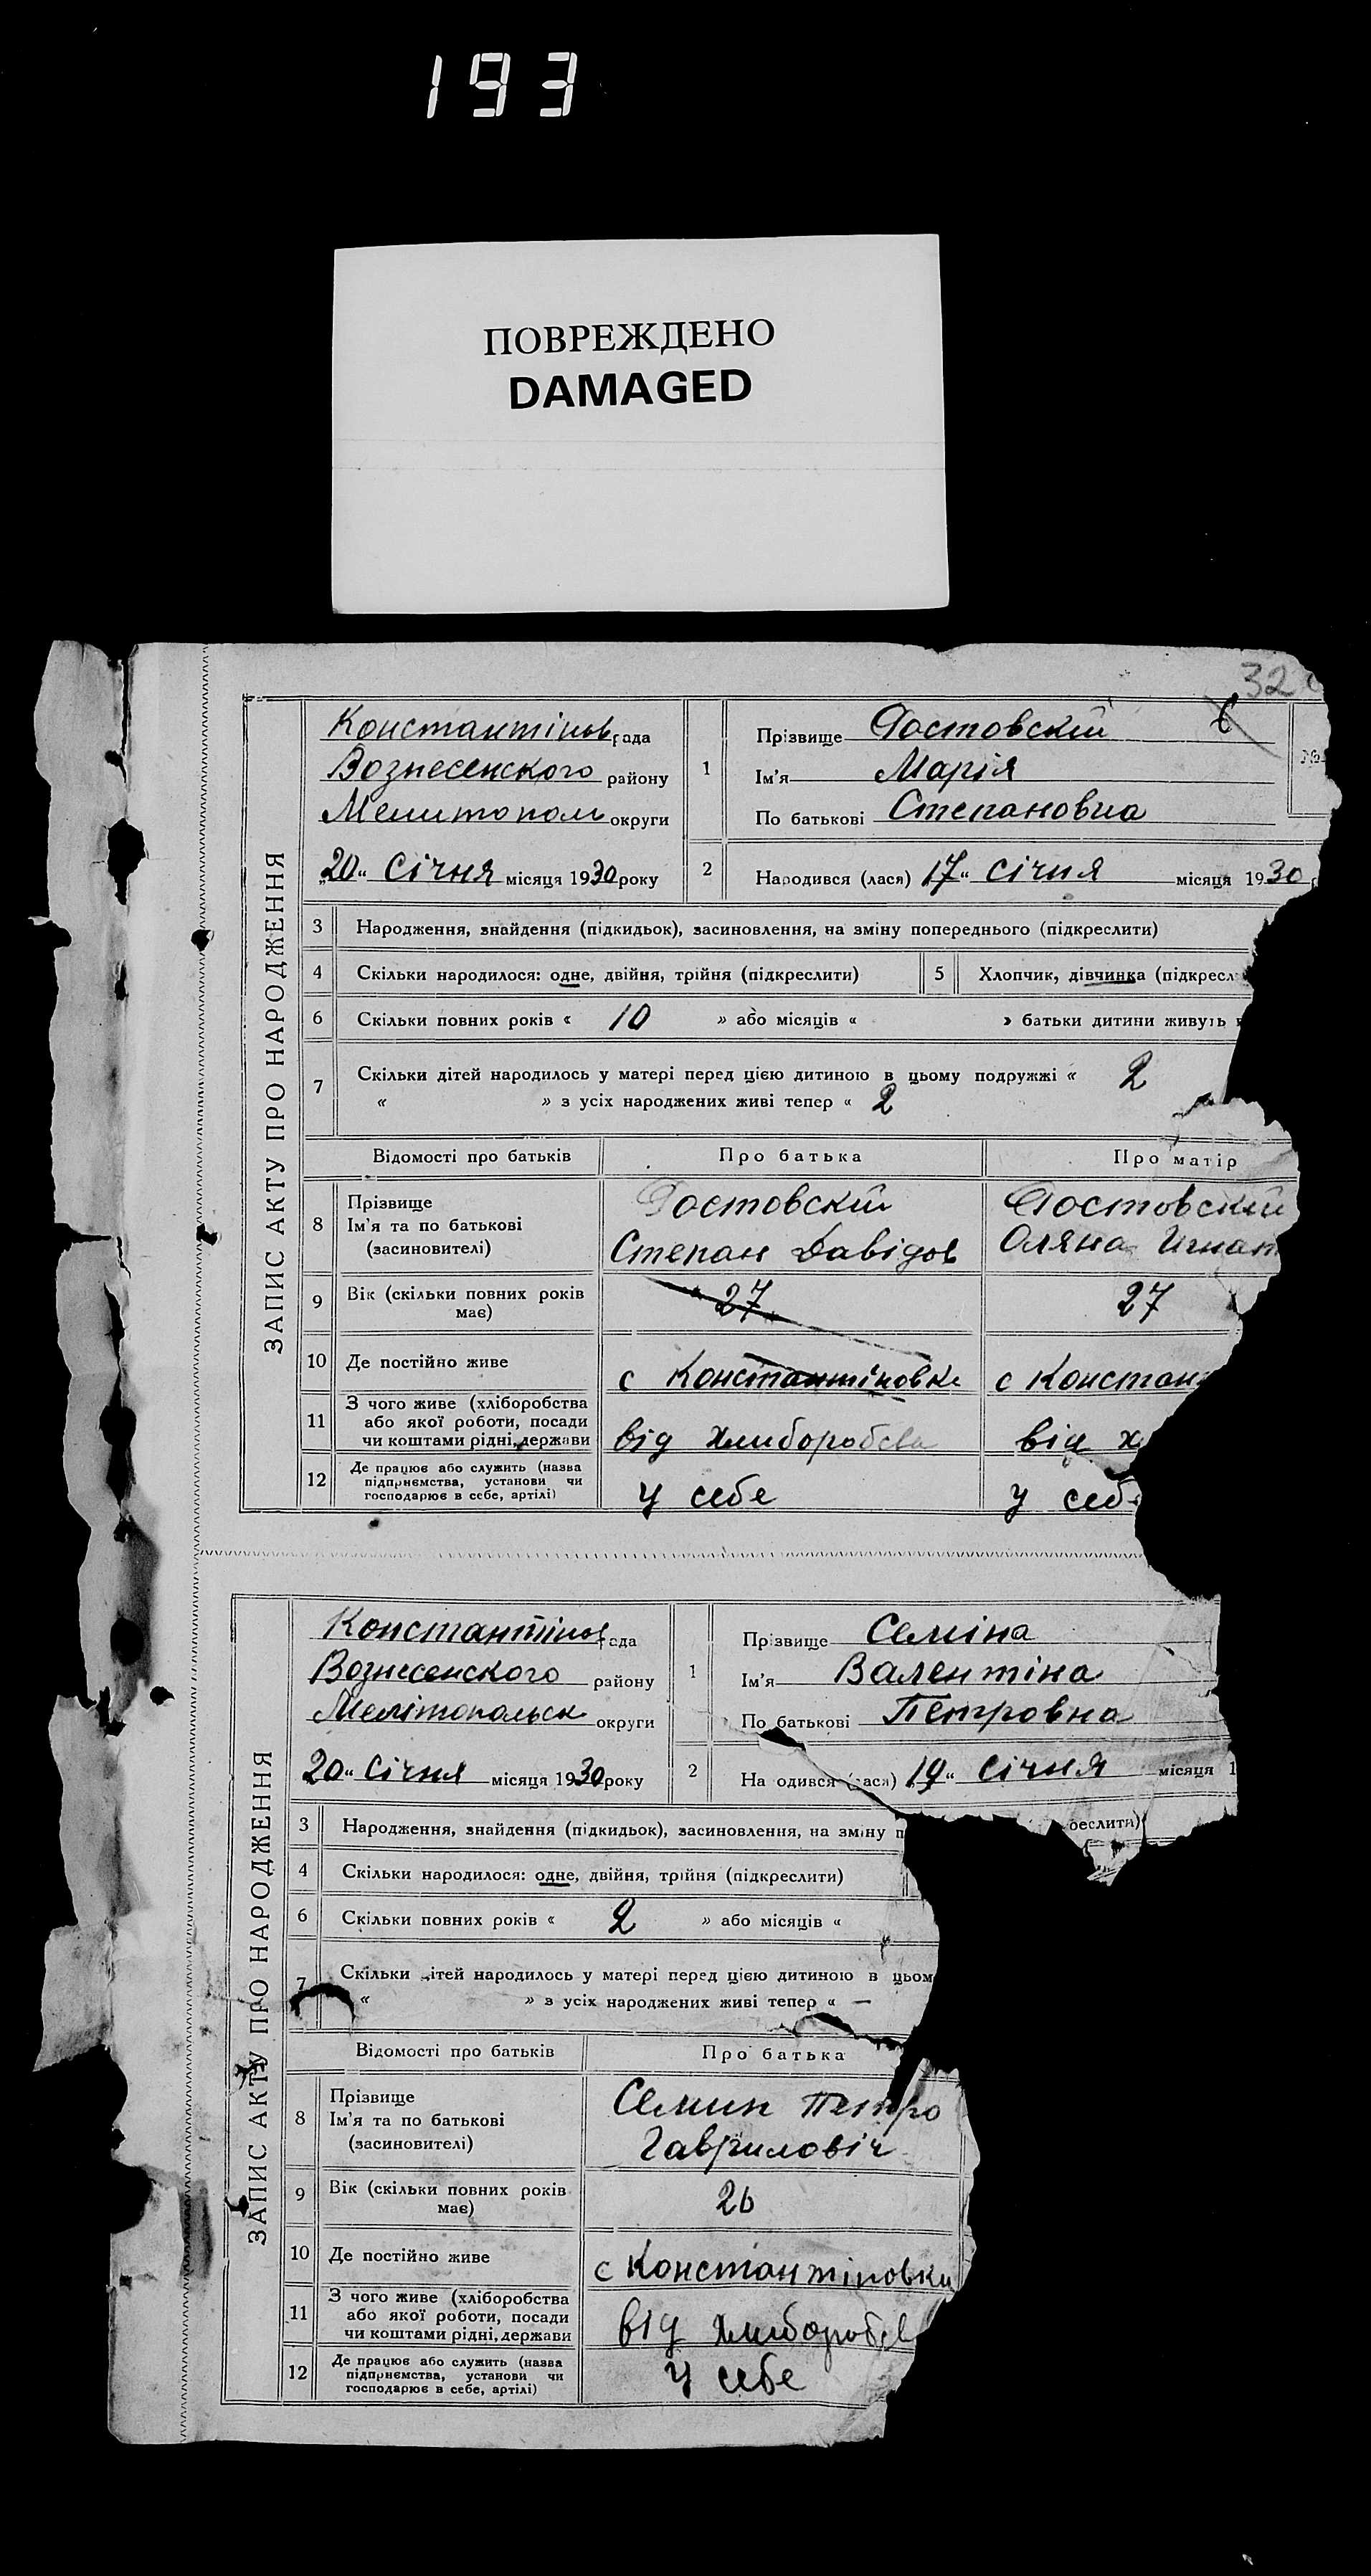 193
ПОВРЕЖДЕНО
DAMAGED
32
ЗАПИС АКТУ ПРО НАРОДЖЕННЯ
Константінов рада
Вознесенского району
Мелитополь округи
„20“ Січня місяця 1930 року
1
Прізвище Ростовскій
Ім'я Марія
По батькові Степановна
№
2
Народився (лася) 17“ січня місяця 1930
3 Народження, знайдення (підкидьок), засиновлення, на зміну попереднього (підкреслити)
4 Скільки народилося: одне, двійня, трійня (підкреслити)
5 Хлопчик, дівчинка (підкресл
6 Скільки повних років « 10 » або місяців « » батьки дитини живуть
7 Скільки дітей народилось у матері перед цією дитиною в цьому подружжі « 2
« » з усіх народжених живі тепер « 2
Відомості про батьків Про батька Про матір
8 Прізвище
Ім'я та по батькові
(засиновителі)
Ростовскій
Степан Давідов
Ростовский
Оляна Игнат
9 Вік (скільки повних років має) 27 27
10 Де постійно живе с Константіновке с Констан
11 З чого живе (хліборобства
або якої роботи, посади
чи коштами рідні, держави
від Хлиборобсва від х
12 Де працює або служить (назва
підприємства, установи чи
господарює в себе, артілі)
у себе у себе
ЗАПИС АКТУ ПРО НАРОДЖЕННЯ
Константінов рада
Вознесенского району
Мелітопольск округи
20“ Січня місяця 1930 року
1
Прізвище Семіна
Ім'я Валентіна
По батькові Петровна
2
На одився (лася) 19“ січня місяця 1
3 Народження, знайдення (підкидьок), засиновлення, на зміну п
реслити)
4 Скільки народилося: одне, двійня, трійня (підкреслити)
6 Скільки повних років « 2 » або місяців «
7 Скільки дітей народилось у матері перед цією дитиною в цьом
« » з усіх народжених живі тепер « —
Відомості про батьків Про батька
8 Прізвище
Ім'я та по батькові
(засиновителі)
Семин Петро
Гавриловіч
9 Вік (скільки повних років має) 26
10 Де постійно живе с Константіновки
11 З чого живе (хліборобства
або якої роботи, посади
чи коштами рідні, держави
від Хлиборобсв
12 Де працює або служить (назва
підприємства, установи чи
господарює в себе, артілі)
у себе